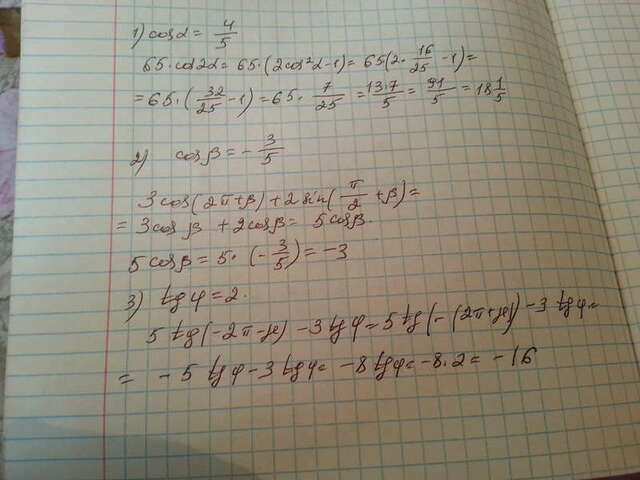 1) cosα = 4/5
65·cos2α = 65·(2cos²α-1) = 65(2·16/25 -1) =
= 65·(32/25 -1) = 65·7/25 = 13·7/5 = 91/5 = 18 1/5
2) cosβ = -3/5
3cos(2π+β) + 2sin(π/2 +β) =
= 3cosβ + 2cosβ = 5cosβ.
5cosβ = 5·(-3/5) = -3
3) tgφ = 2.
5 tg(-2π-φ) - 3 tgφ = 5 tg(-(2π+φ)) - 3 tgφ =
= -5 tgφ - 3 tgφ = -8 tgφ = -8·2 = -16